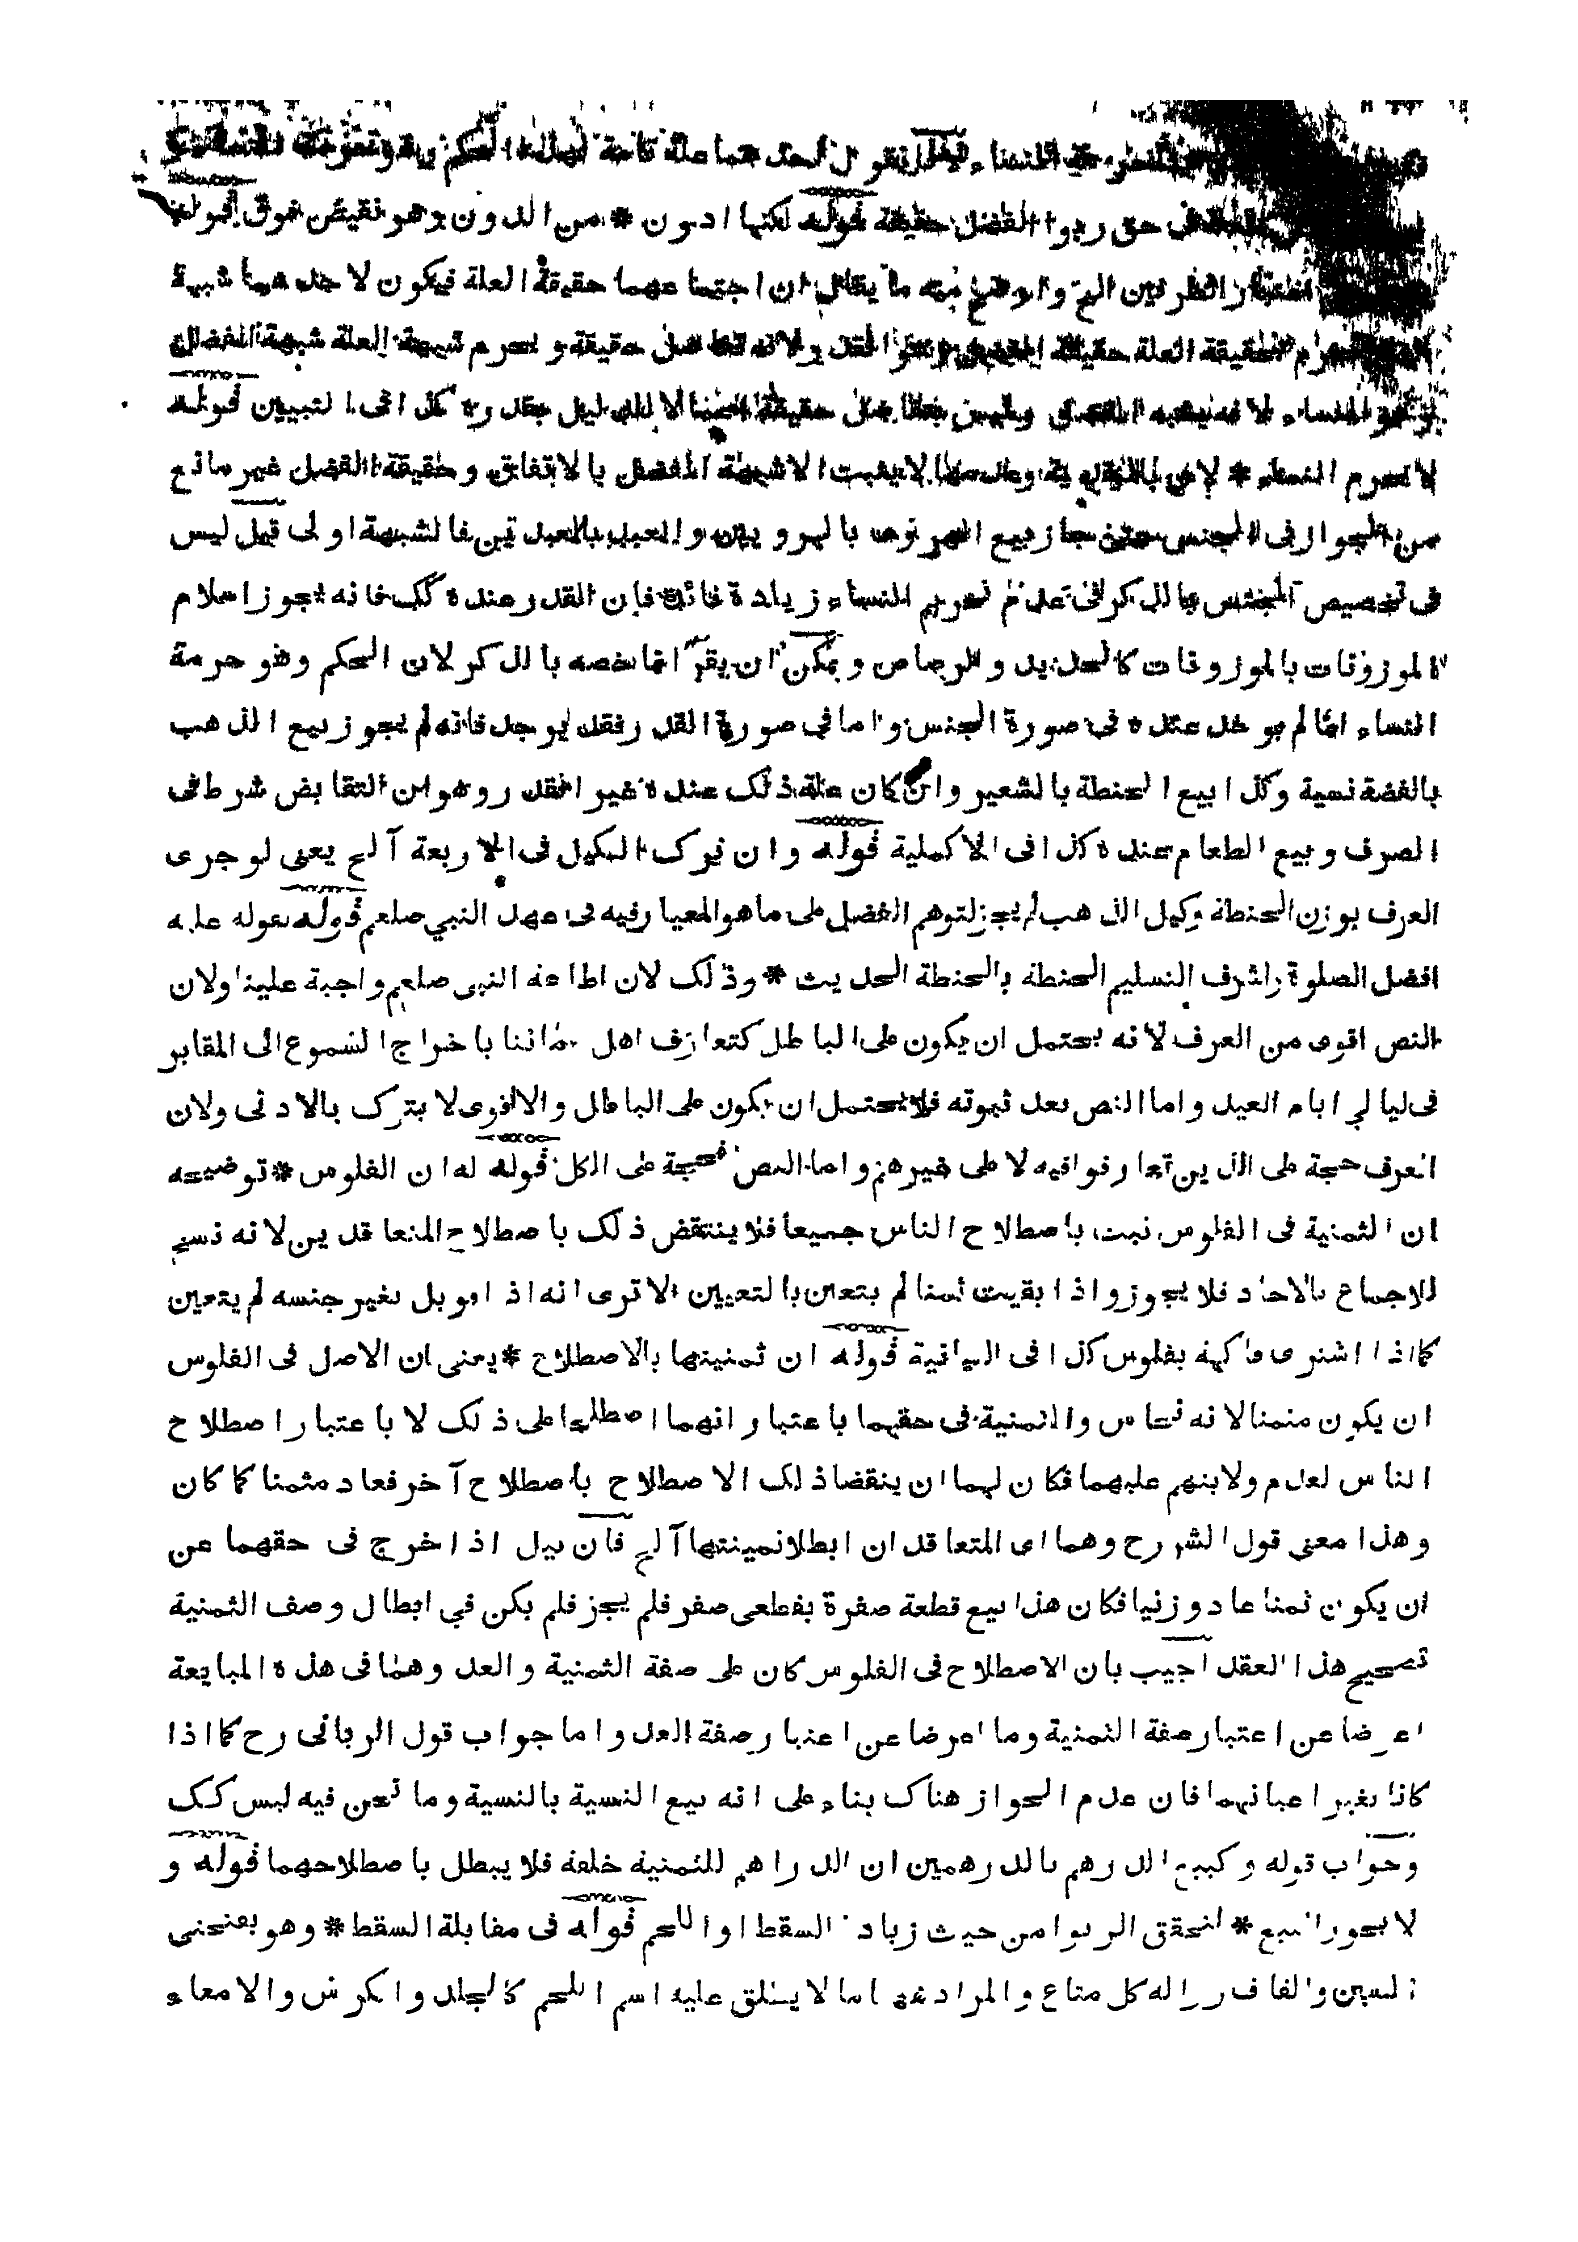 في حق النساء فلم نقول احدهما علة تامة لهذا الحكم
في حق ربوا الفضل حقيقة قوله لكنها ادون * من الدون وهو نقيض فوق قوله
الطرفين الخ واوضح منه ما يقال ان اجتماعهما حقيقة العلة فيكون لاحدهما شبهة
العلة فيحرم بحقيقة العلة حقيقة الفضل ويحرم بشبهة العلة شبهة الفضل
وهو النساء لانه يشبه الفضل وليس بفضل حقيقة كذا في التبيين قوله
لا يحرم النساء * لان بالنقدية وعدمها لا يثبت الا شبهة الفضل بالاتفاق وحقيقة الفضل غير مانع
من الجواز في الجنس حتى جاز بيع الهروى بالهرويين والعبد بالعبدين فالشبهة اولى قيل ليس
في تخصيص الجنس بالذكر في عدم تحريم النساء زيادة فائدة فان القدر عنده كك فانه يجوز اسلام
الموزونات بالموزونات كالحديد والرصاص ويمكن ان يقر انما خصه بالذكر لان الحكم وهو حرمة
النساء انما لم يوجد عنده في صورة الجنس واما في صورة القدر فقد يوجد فانه لم يجوز بيع الذهب
بالفضة نسية وكذا بيع الحنطة بالشعير وان كان علة ذلك عنده غير القدر وهو ان التقابض شرط في
الصرف وبيع الطعام عنده كذا في الاكملية قوله وان ترك الكيل في الاربعة آلخ يعنى لو جرى
العرف بوزن الحنطة وكيل الذهب لم يجز لتوهم الفضل على ما هو المعيار فيه في عهد النبي صلعم قوله بقوله عليه
افضل الصلوة واشرف التسليم الحنطة بالحنطة الحديث * وذلك لان اطاعة النبى صلعم واجبة علينا ولان
النص اقوى من العرف لانه يحتمل ان يكون على الباطل كتعارف اهل زماننا باخراج الشموع الى المقابر
في ليالي ايام العيد واما النص بعد ثبوته فلا يحتمل ان يكون على الباطل والاقوى لا يترك بالادنى ولان
العرف حجة على الذين تعارفوا فيه لا على غيرهم واما النص فحجة على الكل قوله له ان الفلوس * توضيحه
ان الثمنية في الفلوس ثبت باصطلاح الناس جميعا فلا ينتقض ذلك باصطلاح المتعاقدين لانه نسخ
للاجماع بالاحاد فلا يجوز واذا بقيت ثمنا لم يتعين بالتعيين الا ترى انه اذا قوبل بغير جنسه لم يتعين
كما اذا اشترى فاكهة بفلوس كذا في البيانية قوله ان ثمنيتها بالاصطلاح * يعنى ان الاصل في الفلوس
ان يكون مثمنا لانه نحاس والثمنية في حقهما باعتبار انهما اصطلحا على ذلك لا باعتبار اصطلاح
الناس لعدم ولايتهم عليهما فكان لهما ان ينقضا ذلك الاصطلاح باصطلاح آخر فعاد مثمنا كما كان
وهذا معنى قول الشرح وهما اى المتعاقدان ابطلا ثمينتها آلخ فان قيل اذا خرج في حقهما عن
ان يكون ثمنا عاد وزنيا فكان هذا بيع قطعة صفرة بقطعى صفر فلم يجز فلم يكن في ابطال وصف الثمنية
تصحيح هذا العقد اجيب بان الاصطلاح في الفلوس كان على صفة الثمنية والعد وهما في هذه المبايعة
اعرضا عن اعتبار صفة الثمنية وما اعرضا عن اعتبار صفة العد واما جواب قول الربانى رح كما اذا
كانا بغير اعيانهما فان عدم الجواز هناك بناء على انه بيع النسية بالنسية وما نحن فيه ليس كك
وجواب قوله وكبيع الدرهم بالدرهمين ان الدراهم للثمنية خلقة فلا يبطل باصطلاحهما قوله و
لا يجوز البيع * لتحقق الربوا من حيث زيادة السقط او اللحم قوله في مقابلة السقط * وهو بفتحتى
السين والقاف رذالة كل متاع والمراد ههنا ما لا يطلق عليه اسم اللحم كالجلد والكرش والامعاء